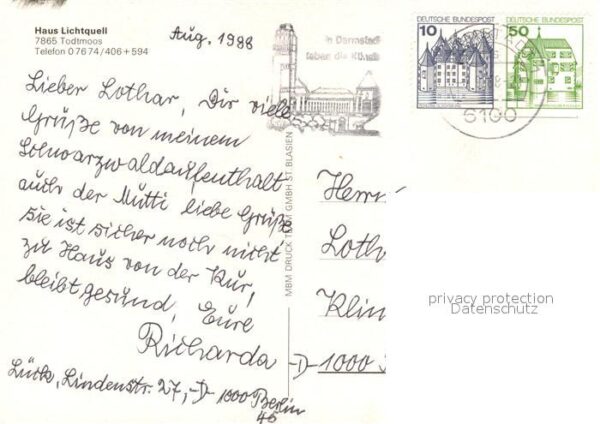 Haus Lichtquell
7865 Todtmoos
Telefon 07674/406+594
Aug. 1988
in Darmstadt
leben die Künste
DEUTSCHE BUNDESPOST
10
DEUTSCHE BUNDESPOST
50
6100
Lieber Lothar, Dir viele
Grüße von meinem
Schwarzwaldaufenthalt
auch der Mutti liebe Grüße
sie ist sicher noch nicht
zu Haus von der Kur,
bleibt gesund, Eure
Richarda
Lück, Lindenstr. 27, -D- 1000 Berlin
MBM DRUCK TEAM GMBH ST. BLASIEN
Herrn
Loth
Klin
-D-1000
privacy protection
Datenschutz